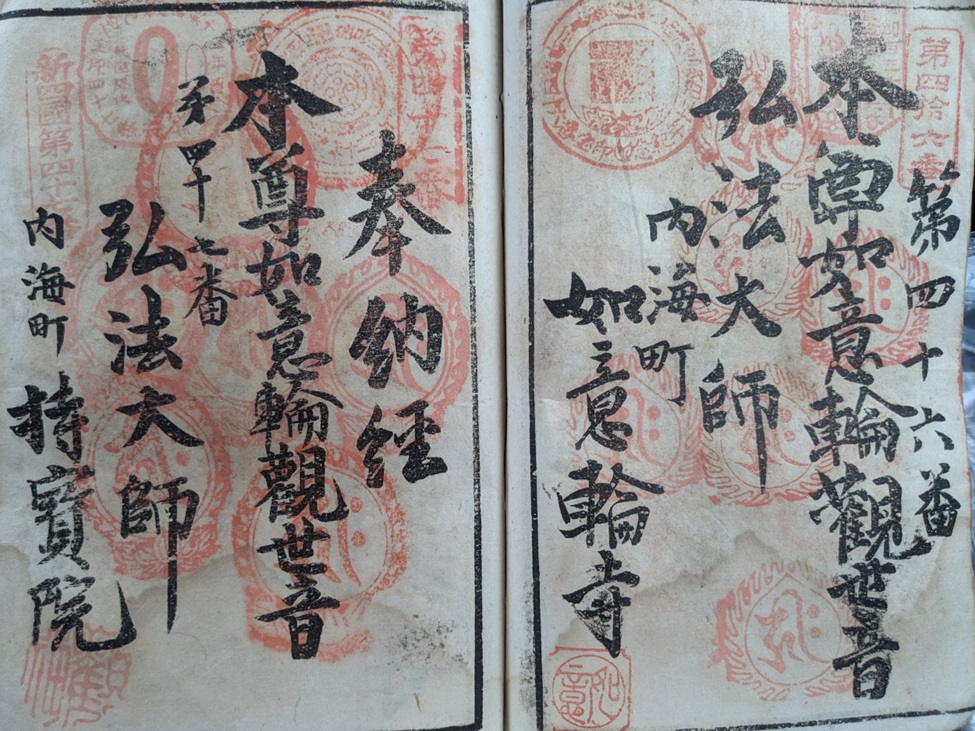 第四拾六番
第四十六番
本尊如意輪觀世音
弘法大師
内海町
如意輪寺
奉納経
本尊如意輪觀世音
第四十七番
弘法大師
内海町
持寳院